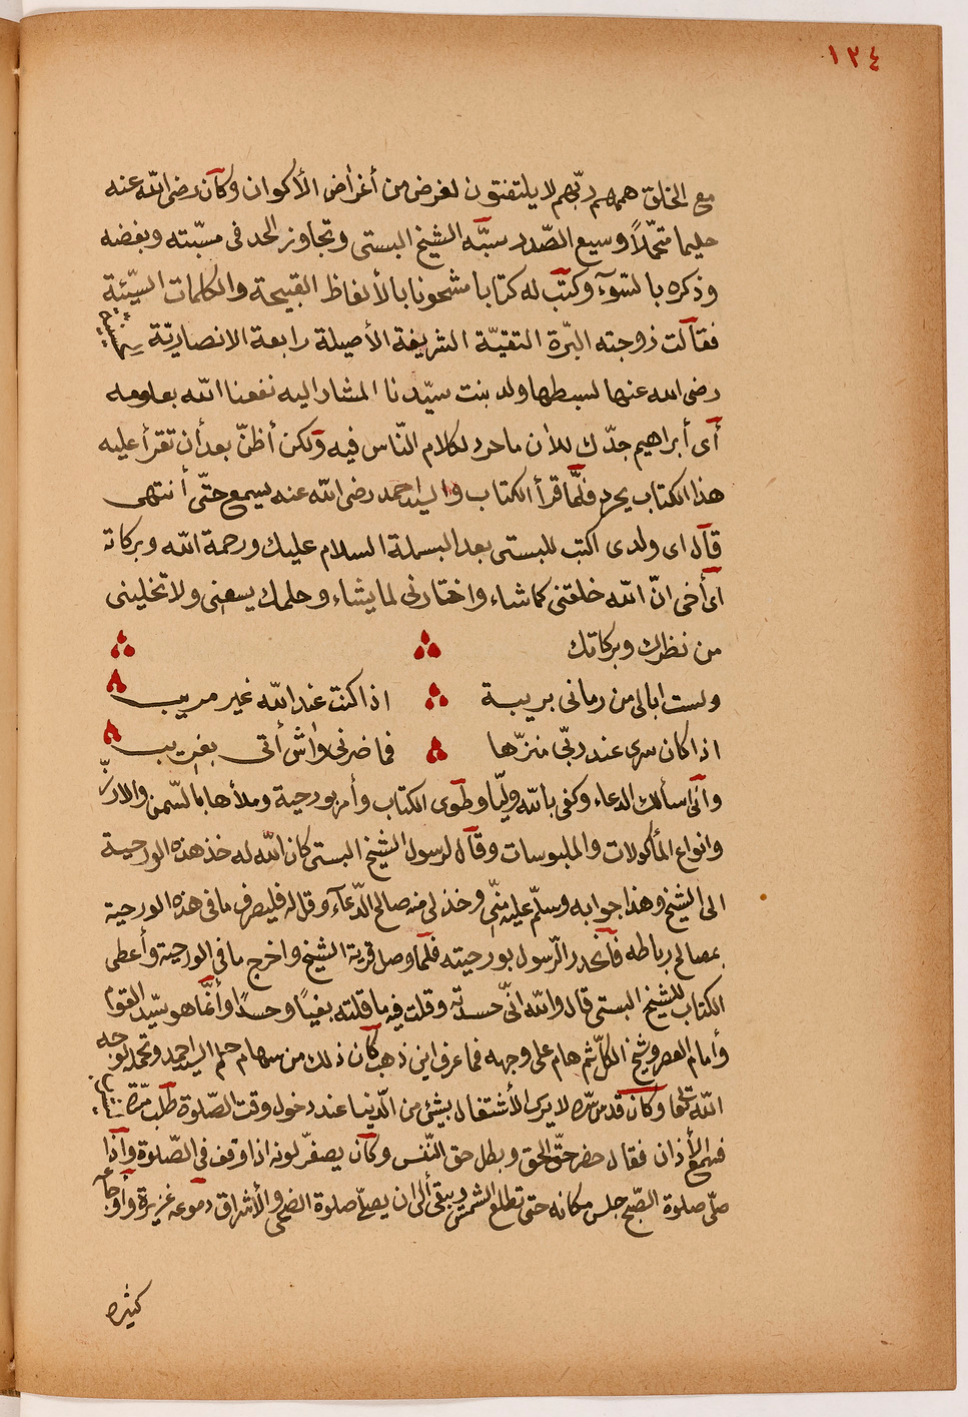 ١٢٤
مع الخلق همهم ربّهم لا يلتفتون لغرض من أغراض الأكوان وكان رضى الله عنه
حليما متحمّلاً وسيع الصّدر سبّه الشيخ البستى وتجاوز الحد فى مسبّته وبغضه
وذكره بالسّوء وكتب له كتابا مشحونا بالألفاظ القبيحة والكلمات السيّئة
فقالت زوجته البرّة التقيّة الشريفة الأصيلة رابعة الانصاريّة
رضى الله عنها لسبطها ولد بنت سيّدنا المشار اليه نفعنا الله بعلومه
أى أبراهيم جدّك للأن ما حرد لكلام النّاس فيه ولكن أظنّ بعد أن تقرأ عليه
هذا الكتاب يحرد فلمّا قرأ الكتاب والسيد احمد رضى الله عنه يسمع حتّى أنتهى
قال اى ولدى اكتب للبستى بعد البسملة السلام عليك ورحمة الله وبركاته
اى أخى انّ الله خلقنى كما شاء واختارنى لما يشاء وحلمك يسعنى ولا تخلينى
من نظرك وبركاتك
ولست ابالى من رمانى بريبة اذا كنت عند الله غير مريب
اذا كان سرى عند ربّى منزّها فما ضرنى واش أتى بغريب
وانّى اسألك الدعاء وكفى بالله وليّا وطوى الكتاب وأمر بورجية وملأها بالسّمن والارزّ
وانواع المأكولات والملبوسات وقال لرسول الشيخ البستى كان الله له خذ هذه الورجية
الى الشيخ وهذا جوابه وسلّم عليه منّى وخذ لى منه صالح الدّعاء وقل له فليصرف ما فى هذه الورجية
بمصالح رباطه فأنحدر الرّسول بورجيته فلمّا وصل قرية الشيخ واخرج ما فى الورجية وأعطى
الكتاب للشيخ البستى قال والله انّى حسدته وقلت فيه ما قلته بغياً وحسداً وأنّما هو سيّد القوم
وأمام العصر وشيخ الكلّ ثم هام على وجهه فما عرف اين ذهب كان ذلك من سهام حلم السيد احمد وتحمله لوجه
الله تعالى وكان قدس سّره لا يرى الأشتغال بشئ من الدّنيا عند دخول وقت الصّلوة طلب مرّة
فسمع الأذان فقال حضر حقّ الحق وبطل حق النّفس وكان يصفّر لونه اذا وقف فى الصّلوة واذا
صلّى صلوة الصّبح جلس مكانه حتى تطلع الشمس ويبقى ألى ان يصلّى صلوة الضحى والأشراق دموعه غزيرة وأوجاعه
كثيره